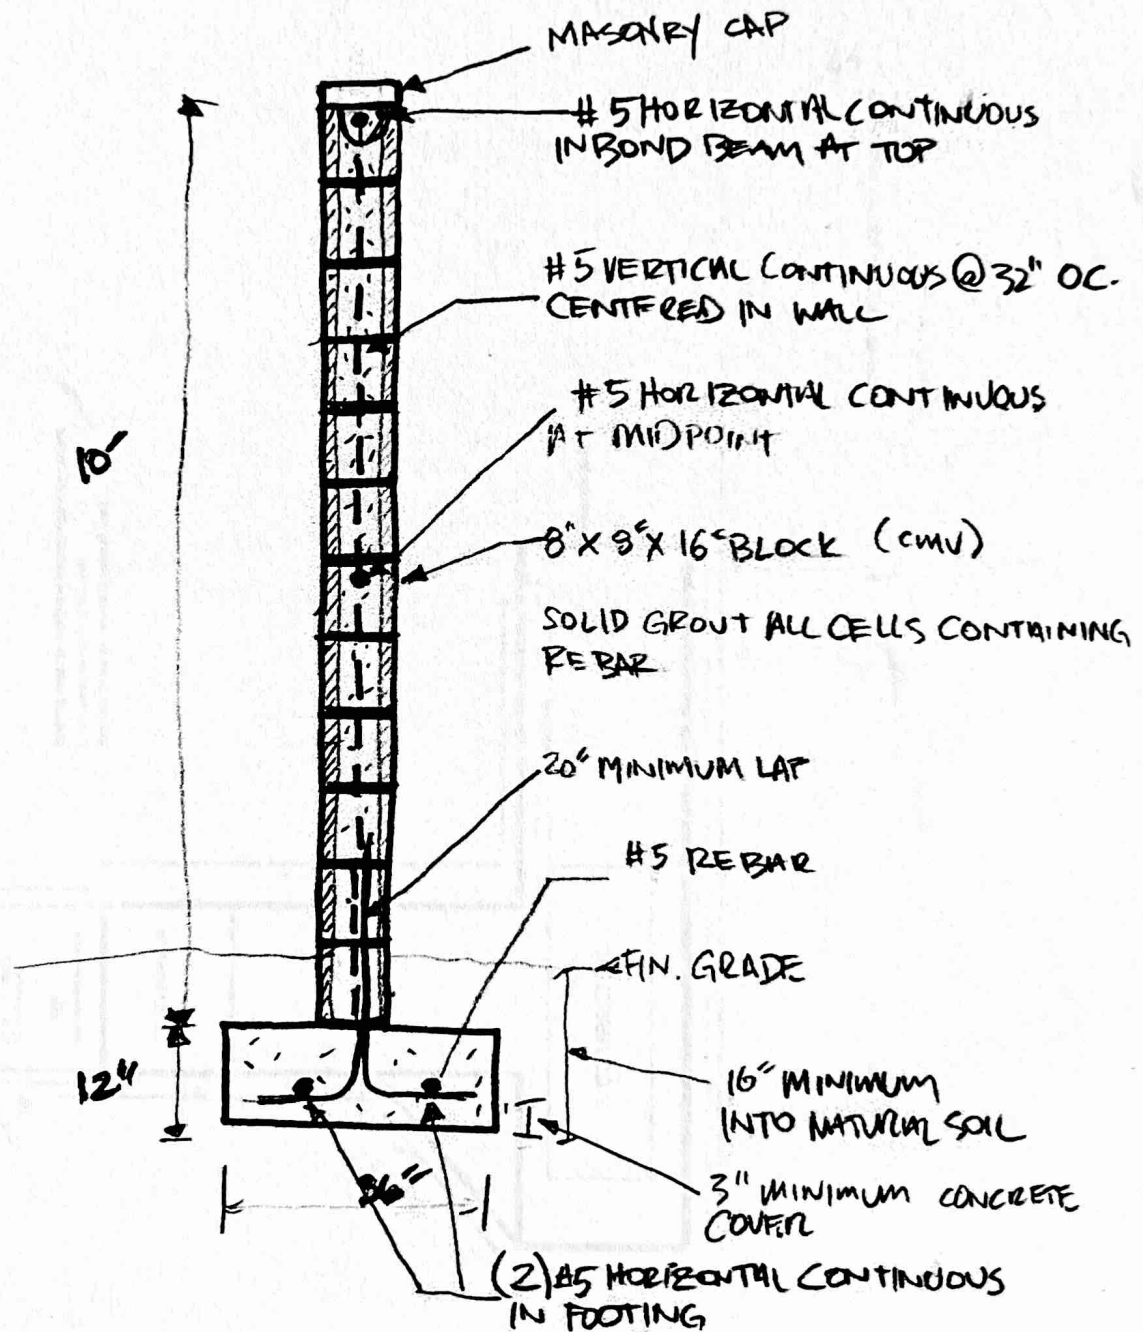 MASONRY CAP
#5 HORIZONTAL CONTINUOUS
IN BOND BEAM AT TOP
#5 VERTICAL CONTINUOUS @ 32" OC.
CENTERED IN WALL
#5 HORIZONTAL CONTINUOUS
AT MIDPOINT
10'
8" X 8" X 16" BLOCK (CMU)
SOLID GROUT ALL CELLS CONTAINING
REBAR
20" MINIMUM LAP
#5 REBAR
FIN. GRADE
12"
16" MINIMUM
INTO NATURAL SOIL
36"
3" MINIMUM CONCRETE
COVER
(2) #5 HORIZONTAL CONTINUOUS
IN FOOTING